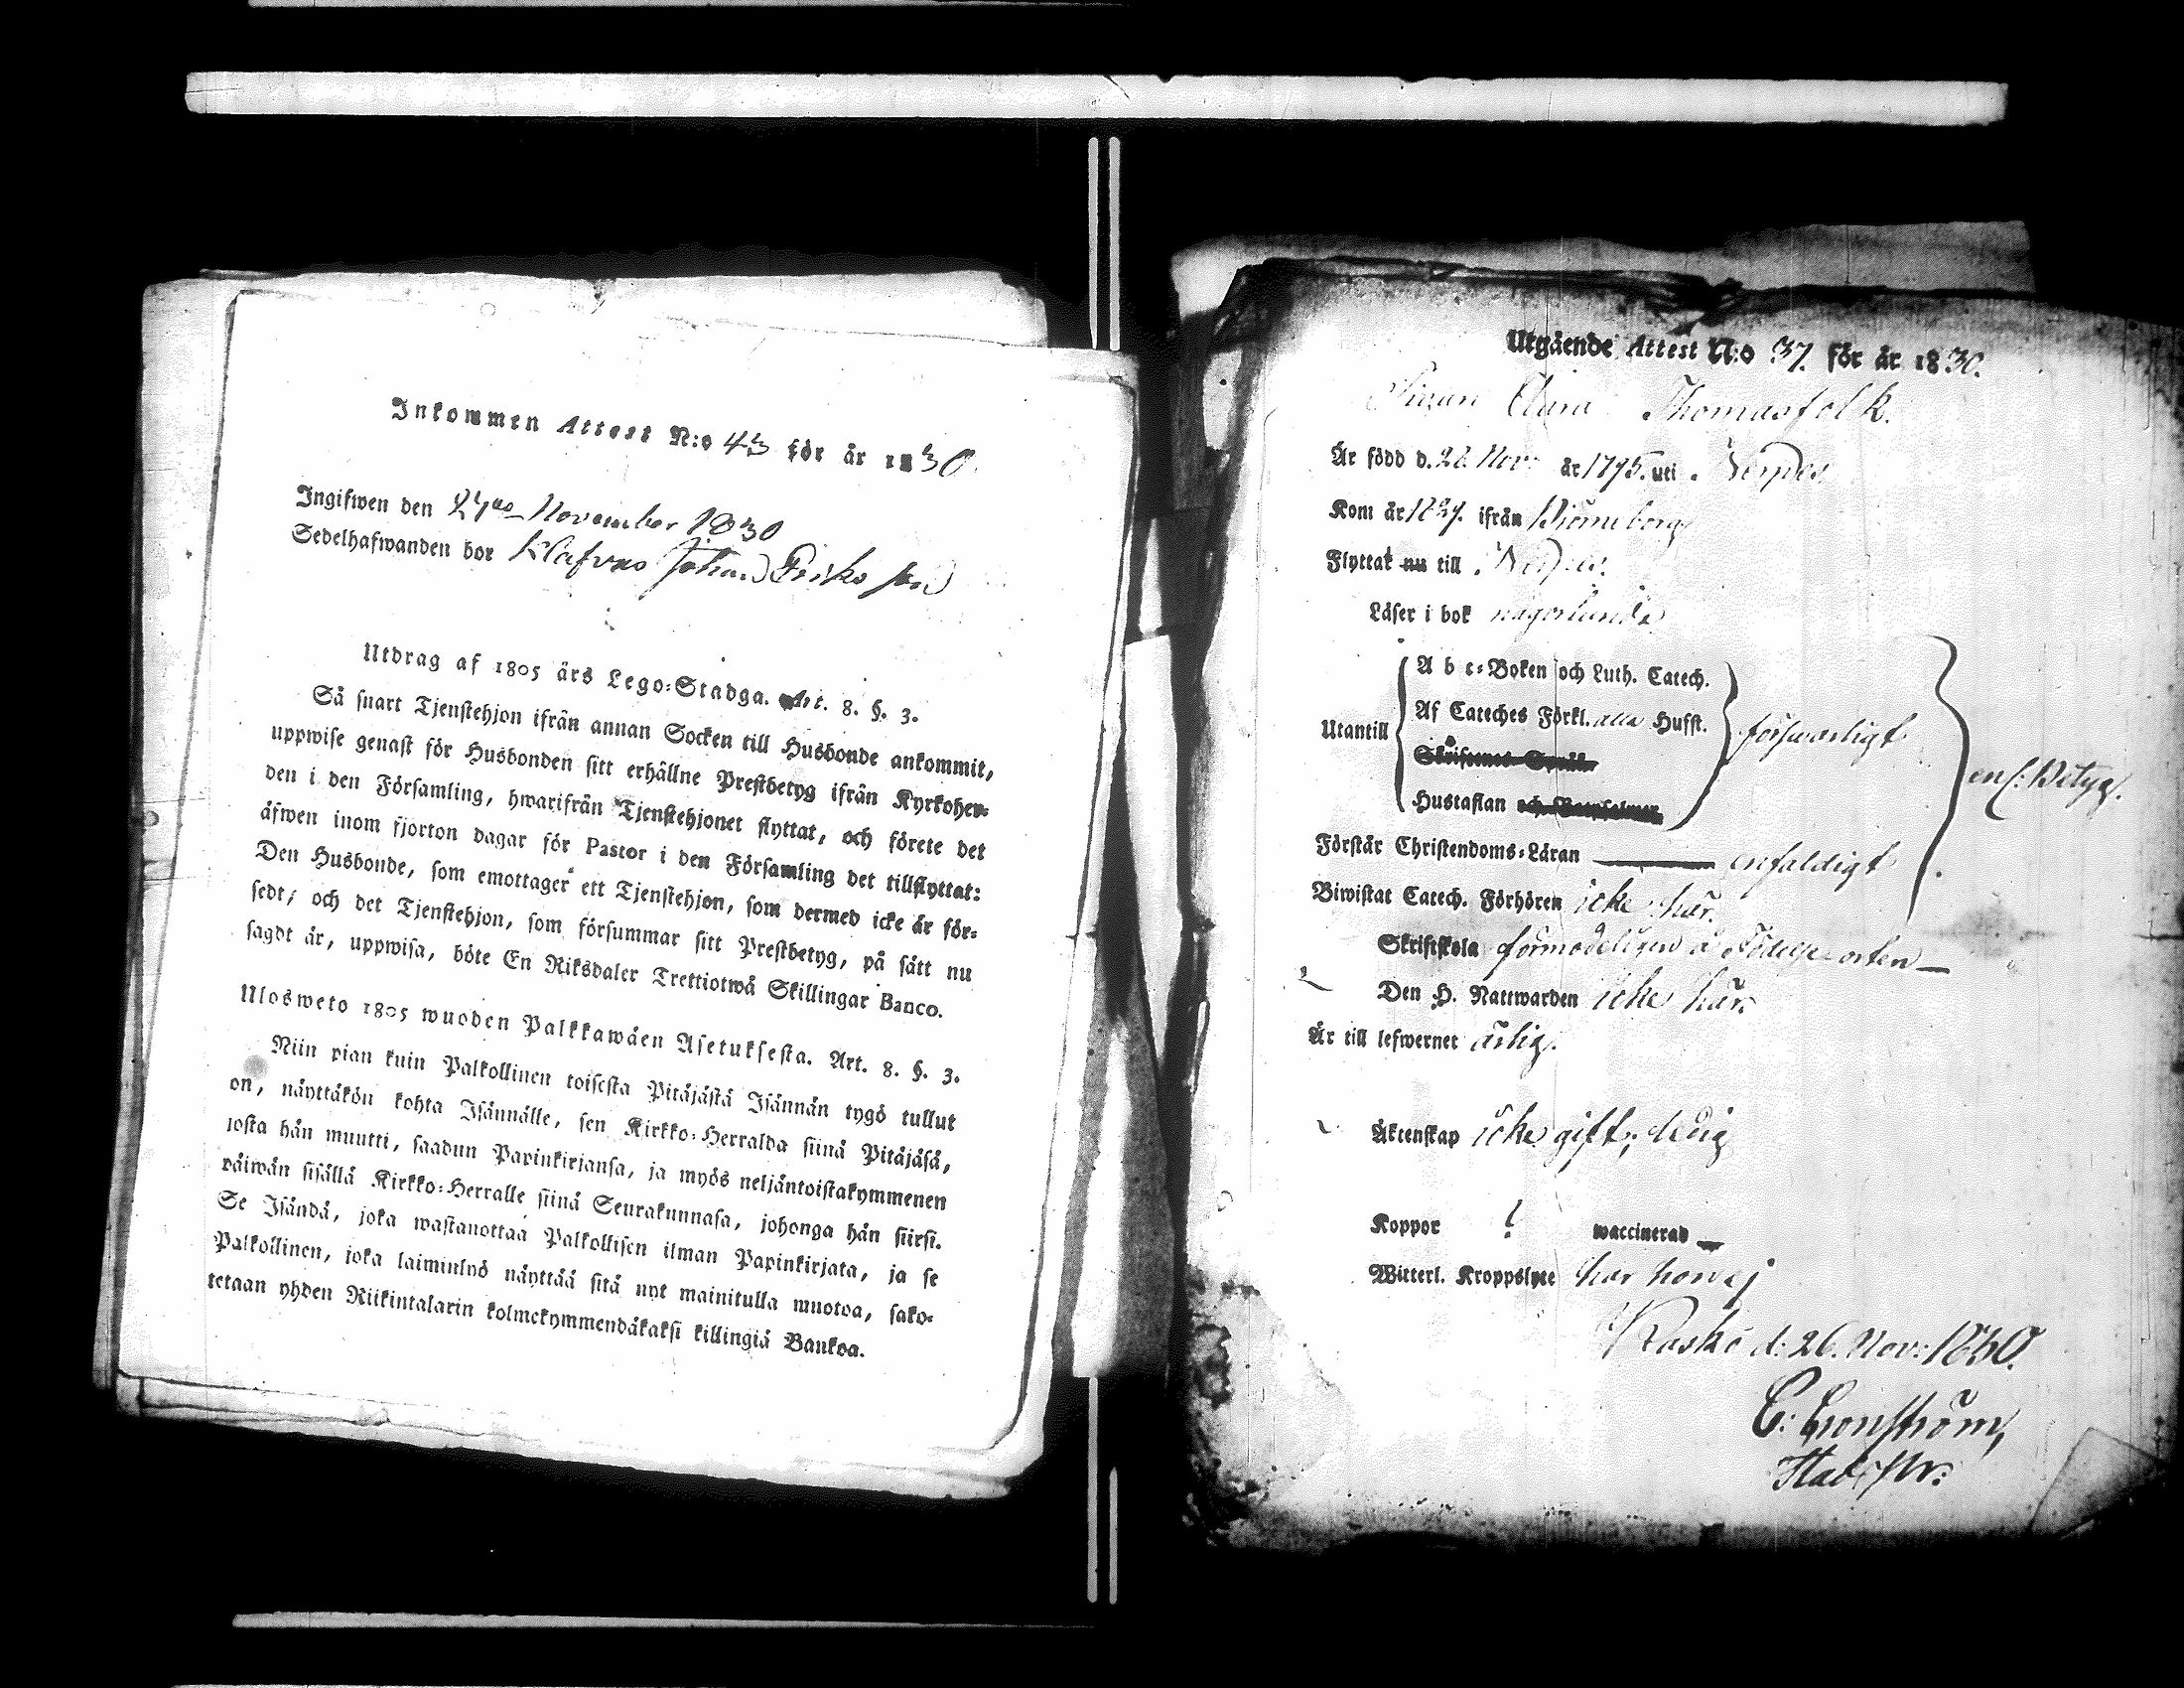 Inkommen Attest N:o 43 för år 1830.
Ingifwen den 27de November 1830
Sedelhafwanden bor Klafvus Johan Eriks son
Utdrag af 1805 års Lego-Stadga. Art. 8. §. 3.
Så snart Tjenstehjon ifrån annan Socken till Husbonde ankommit,
uppwise genast för Husbonden sitt erhållne Prestbetyg ifrån Kyrkoher-
den i den Församling, hwarifrån Tjenstehjonet flyttat, och förete det
äfwen inom fjorton dagar för Pastor i den Församling det tillflyttat:
Den Husbonde, som emottager ett Tjenstehjon, som dermed icke är för-
sedt, och det Tjenstehjon, som försummar sitt Prestbetyg, på sätt nu
sagdt är, uppwisa, böte En Riksdaler Trettiotwå Skillingar Banco.
Ulosweto 1805 wuoden Palkkawäen Asetuksesta. Art. 8. §. 3.
Niin pian kuin Palkollinen toisesta Pitäjästä Isännän tygö tullut
on, näyttäkön kohta Isännälle, sen Kirkko-Herralda siinä Pitäjäsä,
josta hän muutti, saadun Papinkirjansa, ja myös neljäntoistakymmenen
päiwän sisällä Kirkko-Herralle siinä Seurakunnasa, johonga hän siirsi.
Se Isändä, joka wastanottaa Palkollisen ilman Papinkirjata, ja se
Palkollinen, joka laiminlyö näyttää sitä nyt mainitulla muotoa, sako-
tetaan yhden Riikintalarin kolmekymmendäkaksi killingiä Bankoa.
Utgående Attest N:o 37. för år 1830.
Pigan Clara Thomasfolk.
År född d. 28. Nov: år 1795. uti Nerpes
Kom år 1827. ifrån Björneborg
Flyttat nu till Nerpes.
Läser i bok någorlunda
A b c-Boken och Luth. Catech.
Af Cateches Förkl. alla Hufst.
Utantill försvarligt
Skriftenes Språk
Hustaflan och Botpsalmer
enl: Betyg.
Förstår Christendoms-Läran enfaldigt
Biwistat Catech. Förhören icke här.
Skriftskola förmodeligen å Födelseorten
Den H. Nattwarden icke här.
Är till lefwernet ärlig.
Äktenskap icke gift; ledig
Koppor ? waccinerad
Witterl. Kroppslyte har hon ej
Kaskö d: 26. Nov: 1830.
C: Cronström,